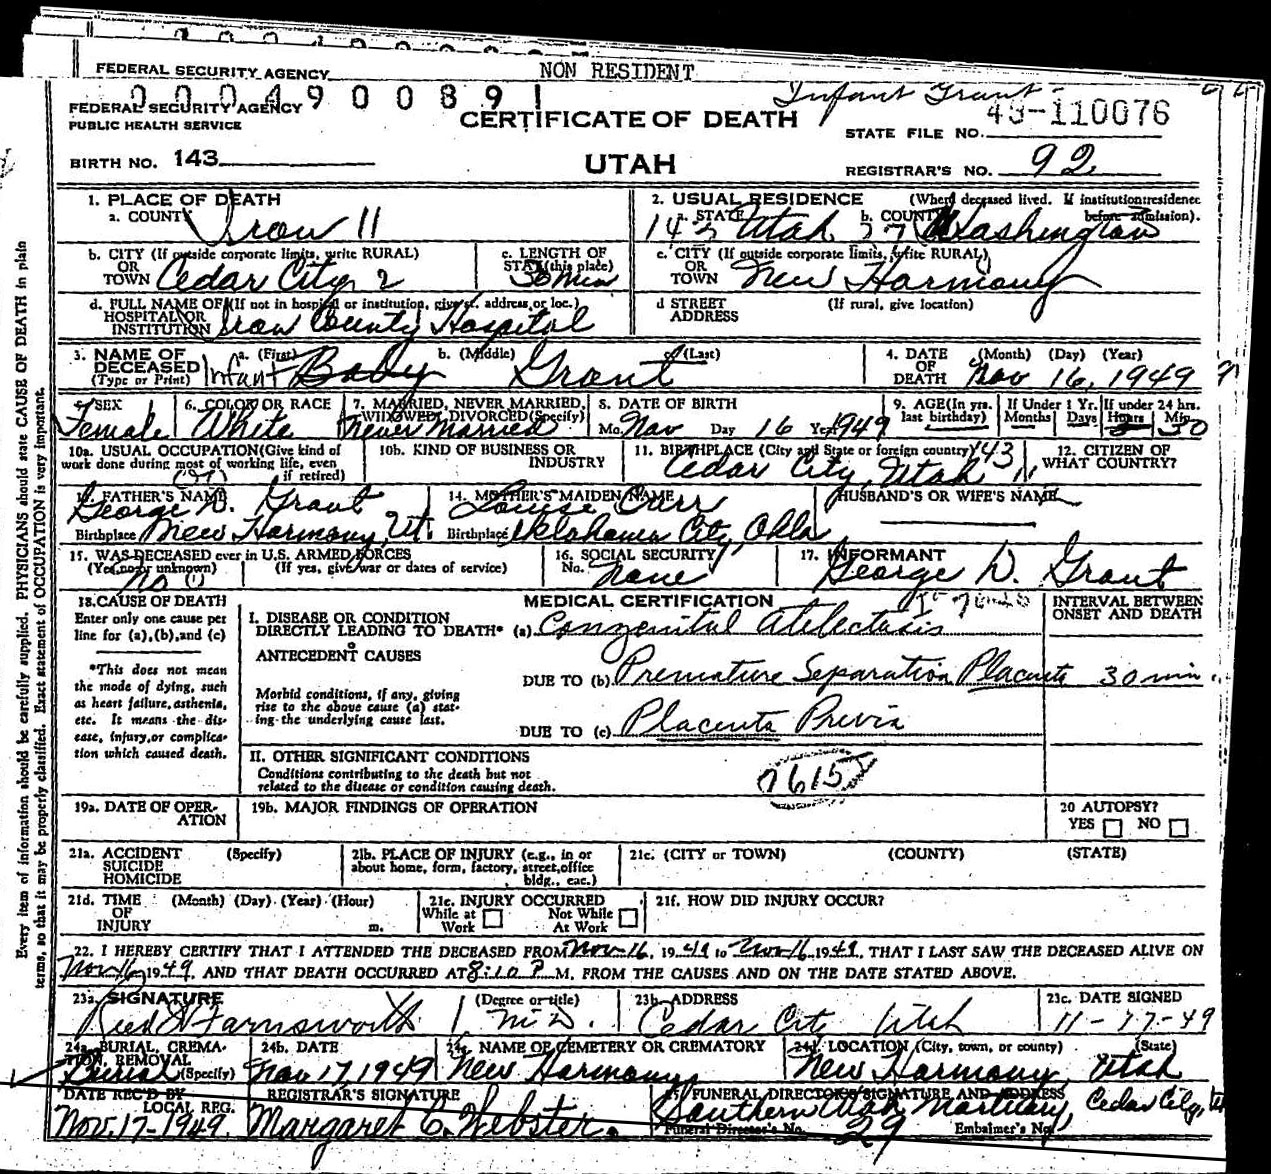 FEDERAL SECURITY AGENCY NON RESIDENT
0 0 0 4 9 0 0 8 9 1 Infant Grant
FEDERAL SECURITY AGENCY
PUBLIC HEALTH SERVICE
CERTIFICATE OF DEATH
STATE FILE NO. 49-110076
BIRTH NO. 143
UTAH
REGISTRAR'S NO. 92
1. PLACE OF DEATH
a. COUNTY Iron 11
2. USUAL RESIDENCE (Where deceased lived. If institution: residence before admission).
143 a. STATE Utah 27 b. COUNTY Washington
b. CITY (If outside corporate limits, write RURAL) OR TOWN Cedar City 2
c. LENGTH OF STAY (this place) 30 Min
c. CITY (If outside corporate limits, write RURAL) OR TOWN New Harmony
d. FULL NAME OF (If not in hospital or institution, give st. address or loc.) HOSPITAL OR INSTITUTION Iron County Hospital
d STREET ADDRESS (If rural, give location)
3. NAME OF DECEASED (Type or Print) a. (First) b. (Middle) c. (Last)
Infant Baby Grant
4. DATE OF DEATH (Month) (Day) (Year) Nov 16, 1949
5. SEX Female
6. COLOR OR RACE White
7. MARRIED, NEVER MARRIED, WIDOWED, DIVORCED (Specify) Never Married
8. DATE OF BIRTH Mo. Nov Day 16 Year 1949
9. AGE (In yrs. last birthday) If Under 1 Yr. Months Days If under 24 hrs. Hours Min. 30
10a. USUAL OCCUPATION (Give kind of work done during most of working life, even if retired)
10b. KIND OF BUSINESS OR INDUSTRY
11. BIRTHPLACE (City and State or foreign country) 143
Cedar City, Utah 11
12. CITIZEN OF WHAT COUNTRY?
13. FATHER'S NAME George D. Grant
Birthplace New Harmony, Ut.
14. MOTHER'S MAIDEN NAME Louise
Birthplace Oklahoma City, Okla
HUSBAND'S OR WIFE'S NAME
15. WAS DECEASED ever in U.S. ARMED FORCES
(Yes, no or unknown) (If yes, give war or dates of service)
no
16. SOCIAL SECURITY No. None
17. INFORMANT George D. Grant
18. CAUSE OF DEATH
Enter only one cause per line for (a), (b), and (c)
*This does not mean the mode of dying, such as heart failure, asthenia, etc. It means the disease, injury, or complication which caused death.
MEDICAL CERTIFICATION
INTERVAL BETWEEN ONSET AND DEATH
I. DISEASE OR CONDITION DIRECTLY LEADING TO DEATH* (a) Congenital Atelectasis
ANTECEDENT CAUSES
Morbid conditions, if any, giving rise to the above cause (a) stating the underlying cause last.
DUE TO (b) Premature Separation Placenta 30 min.
DUE TO (c) Placenta Previa
II. OTHER SIGNIFICANT CONDITIONS
Conditions contributing to the death but not related to the disease or condition causing death.
7615
19a. DATE OF OPERATION
19b. MAJOR FINDINGS OF OPERATION
20 AUTOPSY?
YES NO
21a. ACCIDENT SUICIDE HOMICIDE (Specify)
21b. PLACE OF INJURY (e.g., in or about home, form, factory, street, office bldg., eac.)
21c. (CITY or TOWN) (COUNTY) (STATE)
21d. TIME OF INJURY (Month) (Day) (Year) (Hour) m.
21e. INJURY OCCURRED
While at Work Not While At Work
21f. HOW DID INJURY OCCUR?
22. I HEREBY CERTIFY THAT I ATTENDED THE DECEASED FROM Nov-16, 1949 to Nov 16, 1949, THAT I LAST SAW THE DECEASED ALIVE ON
Nov 16, 1949, AND THAT DEATH OCCURRED AT 8:10 P M. FROM THE CAUSES AND ON THE DATE STATED ABOVE.
23a. SIGNATURE (Degree or title) Farnsworth M.D.
23b. ADDRESS Cedar City Utah
23c. DATE SIGNED 11-17-49
24a. BURIAL, CREMATION, REMOVAL (Specify) Burial
24b. DATE Nov 17, 1949
24c. NAME OF CEMETERY OR CREMATORY New Harmony
24d. LOCATION (City, town, or county) (State) New Harmony, Utah
DATE REC'D BY LOCAL REG. Nov. 17-1949.
REGISTRAR'S SIGNATURE Margaret C. Webster.
25. FUNERAL DIRECTOR'S SIGNATURE AND ADDRESS Southern Utah Mortuary, Cedar City, Ut
Funeral Director's No. 29 Embalmer's No.
Every item of information should be carefully supplied. PHYSICIANS should state CAUSE OF DEATH in plain
terms, so that it may be properly classified. Exact statement of OCCUPATION is very important.